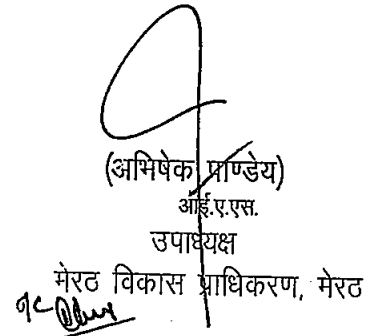 (अभिषेक पाण्डेय)
आई.ए.एस.
उपाध्यक्ष
मेरठ विकास प्राधिकरण, मेरठ